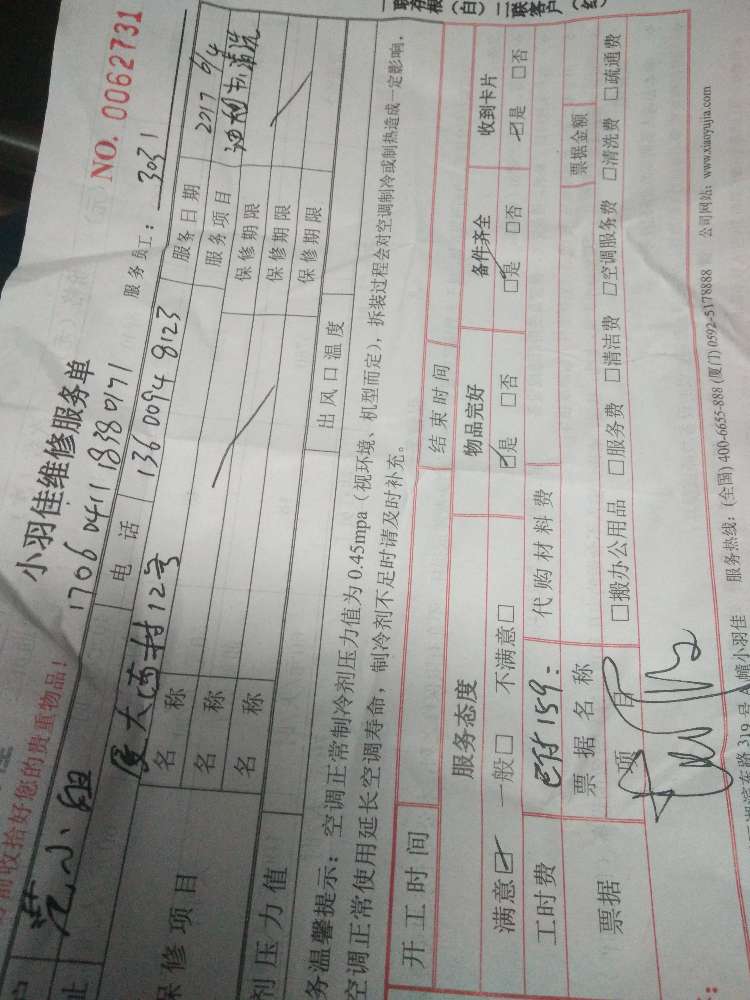 一联存根（白） 二联客户（红）
前收拾好您的贵重物品！
小羽佳维修服务单
NO. 0062731
17060411 18380171
服务员工：3031
户 范小姐
电话 136 0094 8123
服务日期 2017 6/4
址 厦大西村12号
服务项目 油烟机清洗
保修项目
名称
保修期限
名称
保修期限
名称
保修期限
剂压力值
出风口温度
务温馨提示：空调正常制冷剂压力值为0.45mpa（视环境、机型而定），拆装过程会对空调制冷或制热造成一定影响，
空调正常使用延长空调寿命，制冷剂不足时请及时补充。
开工时间
结束时间
服务态度
物品完好
备件齐全
收到卡片
满意☑ 一般□ 不满意□
☑是 □否
☑是 □否
☑是 □否
工时费 已付159-
代购材料费
票据
票据名称
票据金额
项目
□搬办公用品 □服务费 □清洁费 □空调服务费 □清洗费 □疏通费
湖滨东路319号A幢小羽佳
服务热线：(全国) 400-6655-888 (厦门) 0592-5178888
公司网站：www.xiaoyujia.com